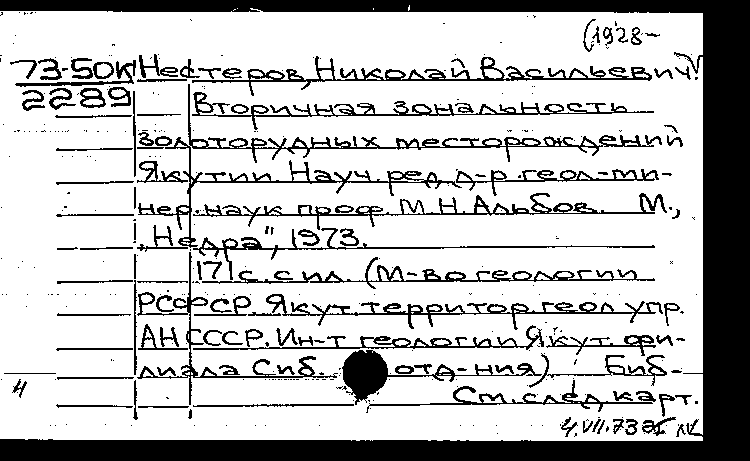 (1928–
73-50К Нестеров, Николай Васильевич
2289 Вторичная зональность
золоторудных месторождений
Якутии. Науч. ред. д-р геол-ми-
нер. наук проф. М.Н. Альбов. М.,
„Недра", 1973.
171 с. с ил. (М-во геологии
РСФСР. Якут. территор. геол упр.
АН СССР. Ин-т геологии Якут. фи-
лиала Сиб. отд-ния) Биб-
4 См. след. карт.
4.VII.73